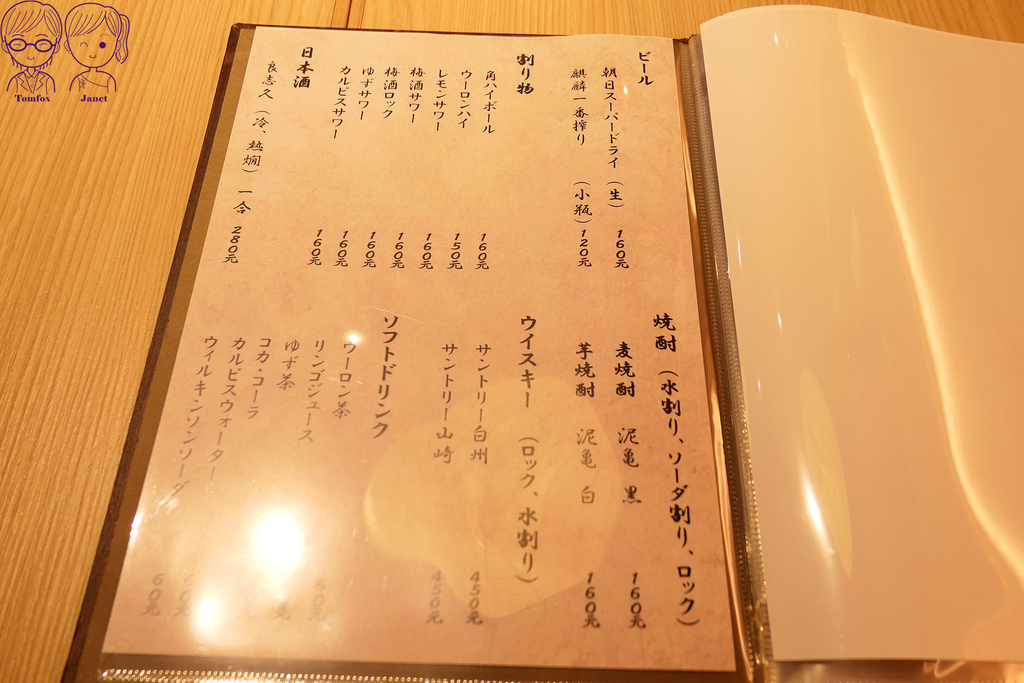 ビール
朝日スーパードライ (生) 160元
麒麟一番搾り (小瓶) 120元
割り物
角ハイボール 160元
ウーロンハイ 150元
レモンサワー 160元
梅酒サワー 160元
梅酒ロック 160元
ゆずサワー 160元
カルピスサワー 160元
日本酒
良志久 (冷、熱燗) 一合 280元
焼酎 (水割り、ソーダ割り、ロック)
麦焼酎 泥亀 黒 160元
芋焼酎 泥亀 白 160元
ウイスキー (ロック、水割り)
サントリー白州 450元
サントリー山崎 450元
ソフトドリンク
ウーロン茶 60元
リンゴジュース
ゆず茶
コカ・コーラ
カルピスウォーター
ウィルキンソンソーダ 60元
Tomfox
Janet